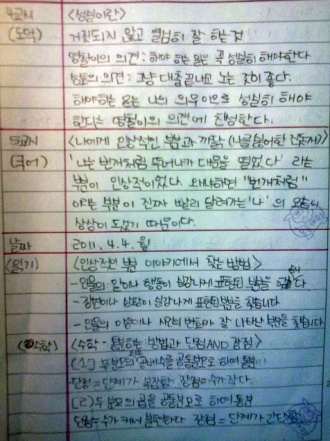 4교시 <성실이란>
(도덕) 거짓되지 않고 열심히 잘 하는 것
의 의견: 해야 하는 일은 꼭 성실히 해야한다
의 의견: 그냥 대충끝내고 노는 것이 좋다.
해야하는 일는 나의 의무이므로 성실히 해야
한다는 의 의견에 찬성한다.
5교시 <나에게 인상적인 부분과 까닭>
(국어) '나는 번개처럼 뛰어나가 대문을 열었다' 라는
부분이 인상적이었다. 왜냐하면 "번개처럼"
이라는 부분이 진짜 빨리 달려가는 '나' 의
상상이 때문이다.
날짜 2011. 4. 4. 월
(읽기) <인상적인 부분 이야기에서 찾는 방법>
- 인물의 말이나 행동이 실감나게 표현된 부분을 찾는다
- 장면이나 상황이 실감나게 표현된 부분을 찾습니다
- 인물의 마음이나 사건의 변화가 잘 나타난 부분을 찾습니다
(수학) <수학 - 통분하는 방법과 단점AND 장점>
(1) 두 분모의 공배수를 공통분모로 하여 통분
단점 = 단계가 복잡함 장점 = 수가 작다.
(2) 두 분모의 곱을 공통분모로 하여 통분
단점 = 수가 커서 복잡하다 장점 = 단계가 간단함